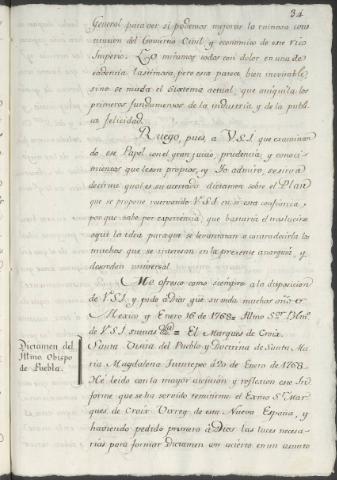 34
General para ver si podemos mejorar la ruinosa cons
titucion del Govierno Civil y economico de este rico
Imperio. Lo miramos todos con dolor en una de
cadencia lastimosa, pero esta parece bien inevitable,
sino se muda el sistema actual, que aniquila los
primeros fundamentos de la industria y de la publi
ca felicidad.
Ruego, pues, a V.S.I. que examinan
do ese Papel con el gran juicio, prudencia, y conoci
mientos que le son propios, y Yo admiro, se sirva
decirme qual es su acertado dictamen sobre el Plan
que se propone reservando V.S.I. en sí esta confianza,
por que sabe por experiencia, que bastaria el traslucirse
aqui la idea para que se levantaran a contradecirla los
muchos que se interesan en la presente anarquia, y
desorden universal.
Me ofrezco como siempre a la disposicion
de V.S.I. y pido a Dios gũe su vida muchos años
Mexico y Enero 16 de 1768= Illmo Sõr.
de V.S.I. su mas = El Marques de Croix.
Dictamen del
Illmo Obispo
de Puebla.
Santa Visita del Pueblo y Doctrina de Santa Ma
ria Magdalena a 20 de Enero de 1768.
He leido con la mayor atencion y reflexion ese In
forme que se ha servido remitirme el Exmo Sr. Mar
ques de Croix Virrey de esta Nueva España, y
haviendo pedido primero a Dios las luces necesa
rias para formar dictamen con acierto en un asunto